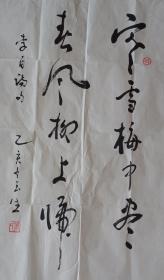 寒雪梅中尽
春风柳上归
李白诗句
乙亥